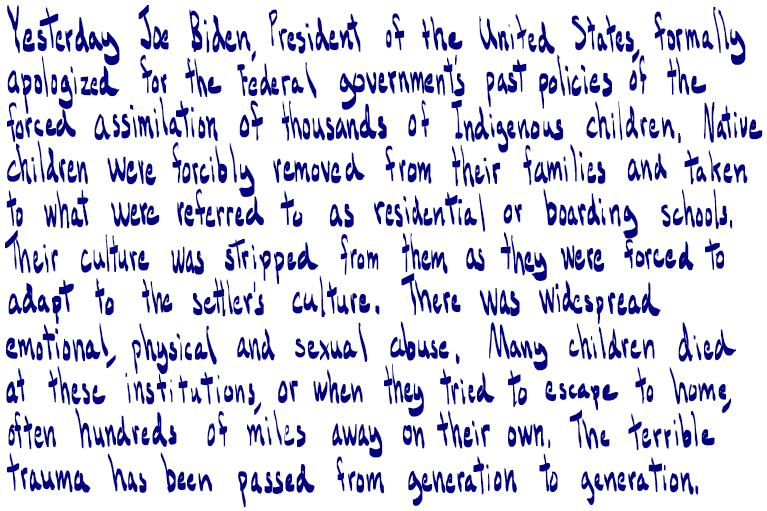 Yesterday Joe Biden, President of the United States, formally
apologized for the Federal government's past policies of the
forced assimilation of thousands of Indigenous children. Native
children were forcibly removed from their families and taken
to what were referred to as residential or boarding schools.
Their culture was stripped from them as they were forced to
adapt to the settler's culture. There was widespread
emotional, physical and sexual abuse. Many children died
at these institutions, or when they tried to escape to home,
often hundreds of miles away on their own. The terrible
trauma has been passed from generation to generation.